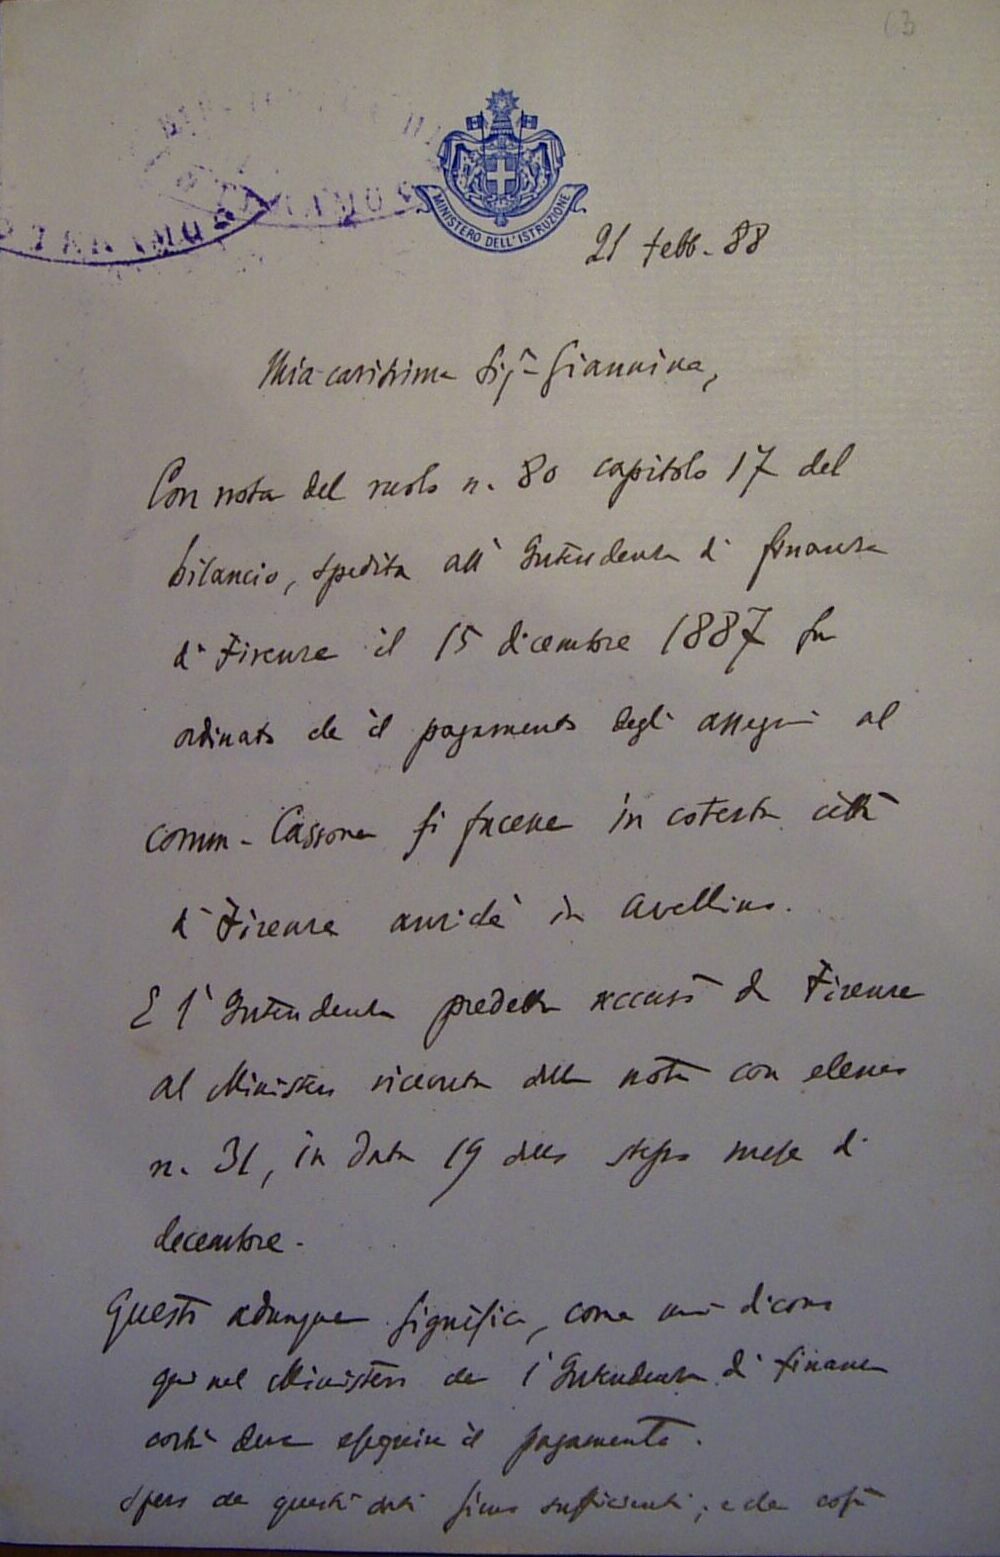 63
MINISTERO DELL'ISTRUZIONE
21 febb. 88
Mia carissima Sigª Giannina,
Con nota del ruolo n. 80 capitolo 17 del
bilancio, spedita all'Intendenza di finanza
di Firenze il 15 dicembre 1887 fu
ordinato che il pagamento degli assegni al
comm. Cassone si facesse in cotesta città
di Firenze anzichè in Avellino.
E l'Intendenza predetta accusò da Firenze
al Ministero ricevuta della nota con elenco
n. 31, in data 19 dello stesso mese di
decembre.
Questo adunque significa, come mi dicono
qui nel Ministero che l'Intendenza di finanza
costì deve eseguire il pagamento.
Spero che questi dati sieno sufficienti; e che così